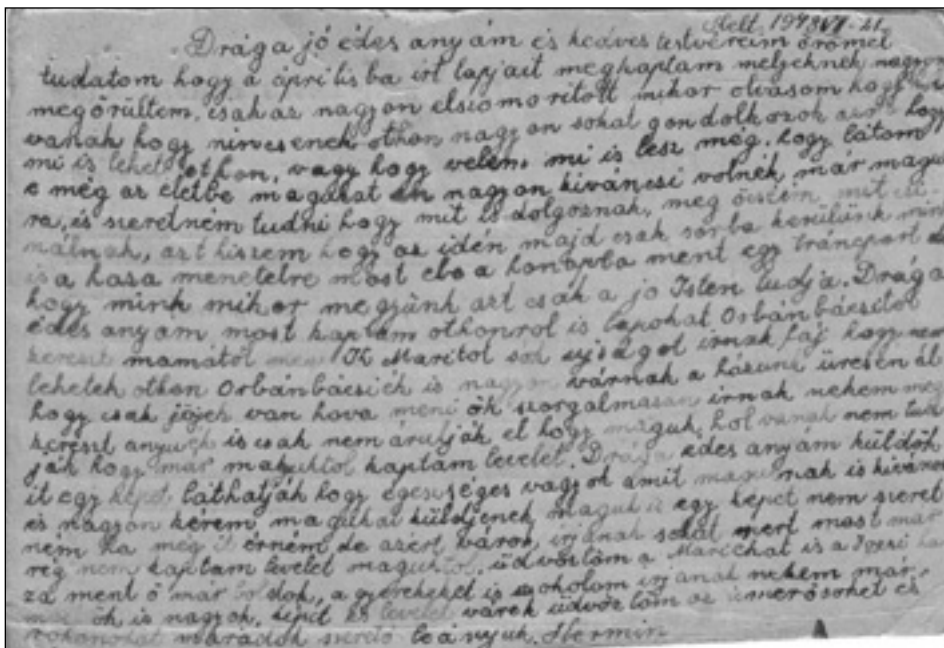 1948 VI. 21.
Drága jó édes anyám és kedves testvéreim örömel
tudatom hogy á áprilisba irt lapjait megkaptam melyeknek nagyon
megőrültem, csak az nagyon elszomoritott mikor olvasom hogy
vanak hogy nincsenek othon nagyon sokat gondolkozok azt hogy
mi is lehet othon, vagy hogy velem mi is lesz még, hogy látom
e még az életbe magukat én nagyon kiváncsi volnék már magu
ra, és szeretném tudni hogy mit is dolgoznak, meg öcsém mit csi-
nálnak, azt hiszem hogy az idén majd csak sorba kerülünk min
is a haza menetelre most ebo a honapba ment egy tráncport de
hogy mink mikor megyünk azt csak a jo Isten tudja. Drága
édes anyám most kaptam othonrol is lapokat Orbánbácsitol
kereszt mamátol meg K Maritol sok ujságot irnak fáj hogy nem
lehetek othon Orbánbácsiék is nagyon várnak a házunk üresen ál
hogy csak jöjek van hova meni ők szorgalmasan irnak nekem meg
kereszt anyuék is csak nem árulják el hogy maguk hol vanak nem tud
ják hogy már maguktol kaptam levelet. Drága édes anyám küldök
it egy képet láthatják hogy egeséges vagyok amit maguknak is kivánok
és nagyon kérem magukat küldjenek maguk is egy képet nem szeret
ném ha még it érném de azért várok, irjanak sokat mert most már
rég nem kaptam levelet maguktol, üdvöslöm a Maricháat is a
za ment ő már boldok, a gyerekeket is csokolom irjanak nekem már
ők is nagyok, képit és levelet várok üdvözlöm az ismerősöket és
rokonokat maradok szerető leányuk. Hermin